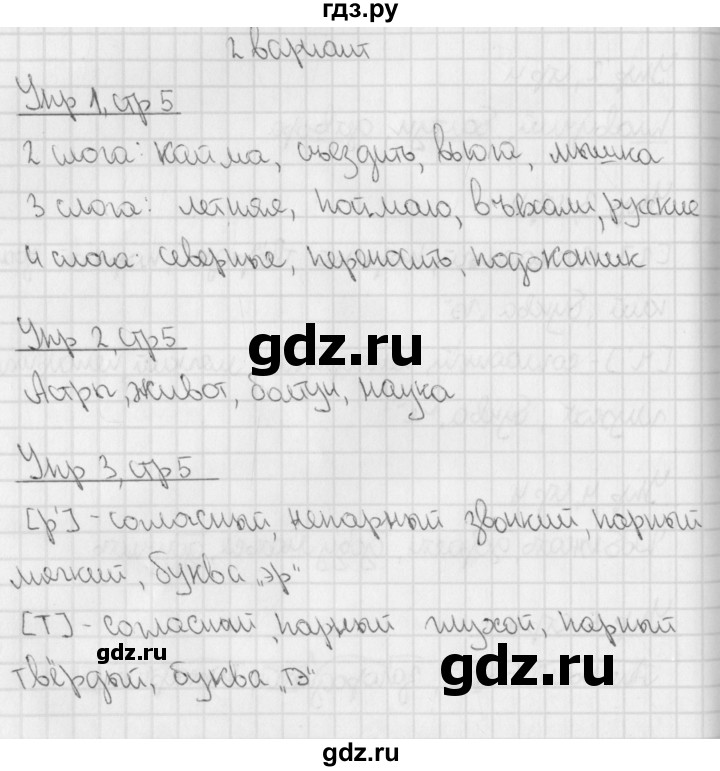 гдз.ру
2 вариант
Упр 1, стр 5
2 слога: кайма, съездить, вьюга, мышка
3 слога: летняя, поймаю, въехали, русские
4 слога: северные, переносить, подоконник
Упр 2, стр 5
gdz.ru
Астры, живот, болтун, наука
Упр 3, стр 5
[р'] - согласный, непарный звонкий, парный
мягкий, буква „эр"
[Т] - согласный, парный глухой, парный
gdz.ru
твёрдый, буква „тэ"
gdz.ru
gdz.ru